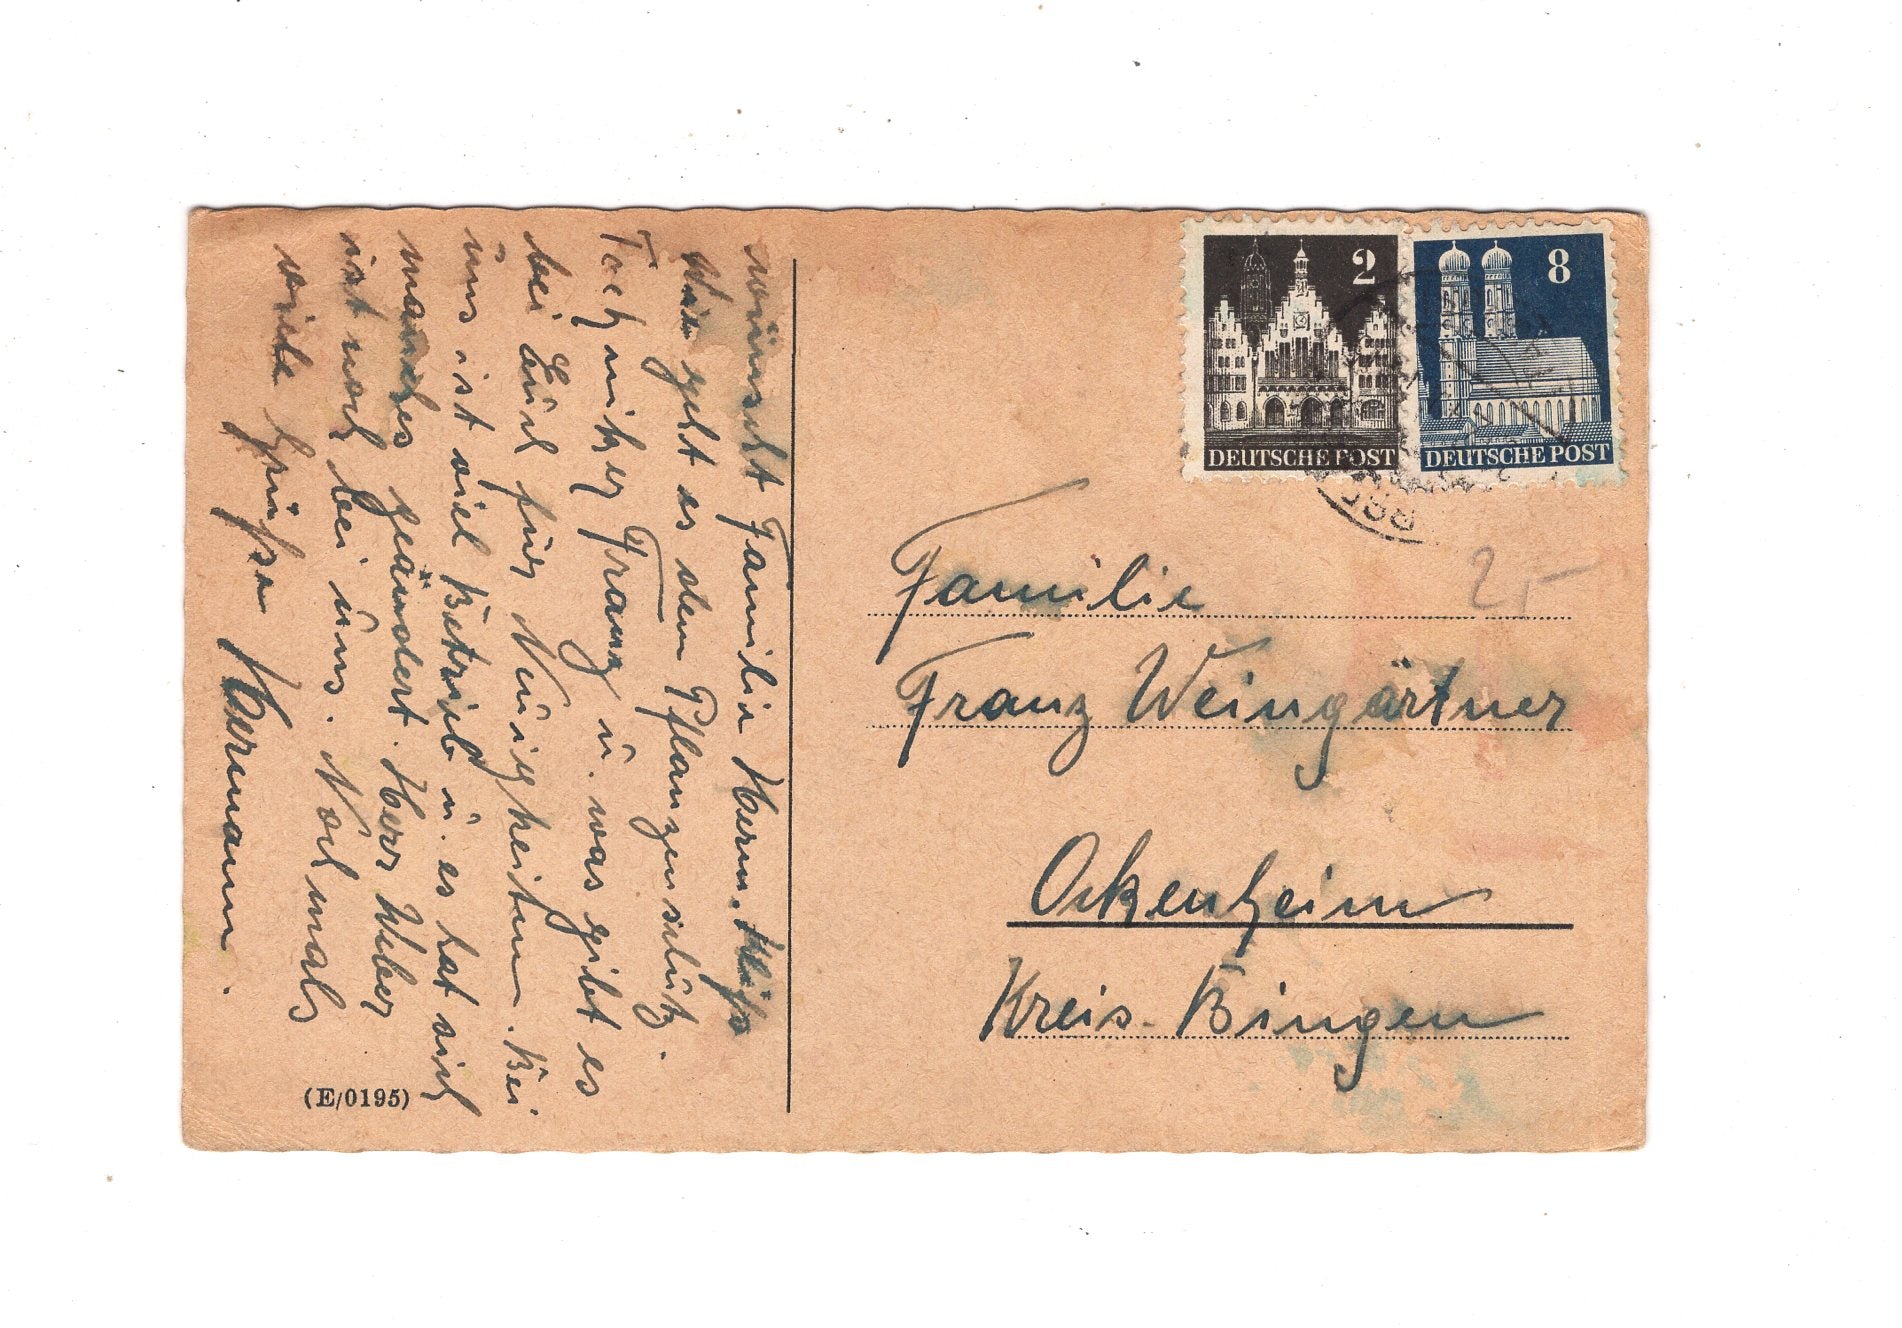 wünscht Familie Herm. Klös
Wie geht es dem Pflanzenschutz.
Techniker Franz u. was gibt es
bei Euch für Neuigkeiten. Bei
uns ist viel Betrieb u. es hat sich
manches geändert. Herr Weber
ist noch bei uns. Nochmals
viele Grüße Hermann.
(E/0195)
2
DEUTSCHE POST
8
DEUTSCHE POST
2,–
Familie
Franz Weingärtner
Ockenheim
Kreis. Bingen